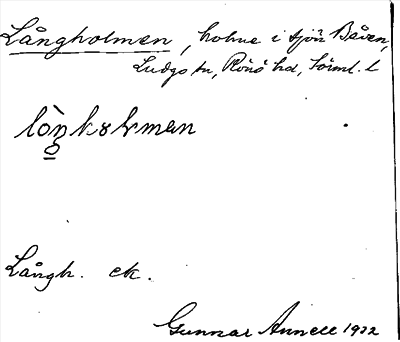 Långholmen, holme i sjön Båven,
Ludgo sn, Rönö hd, Sörml. l
Långh. ek.
Gunnar Annell 1922